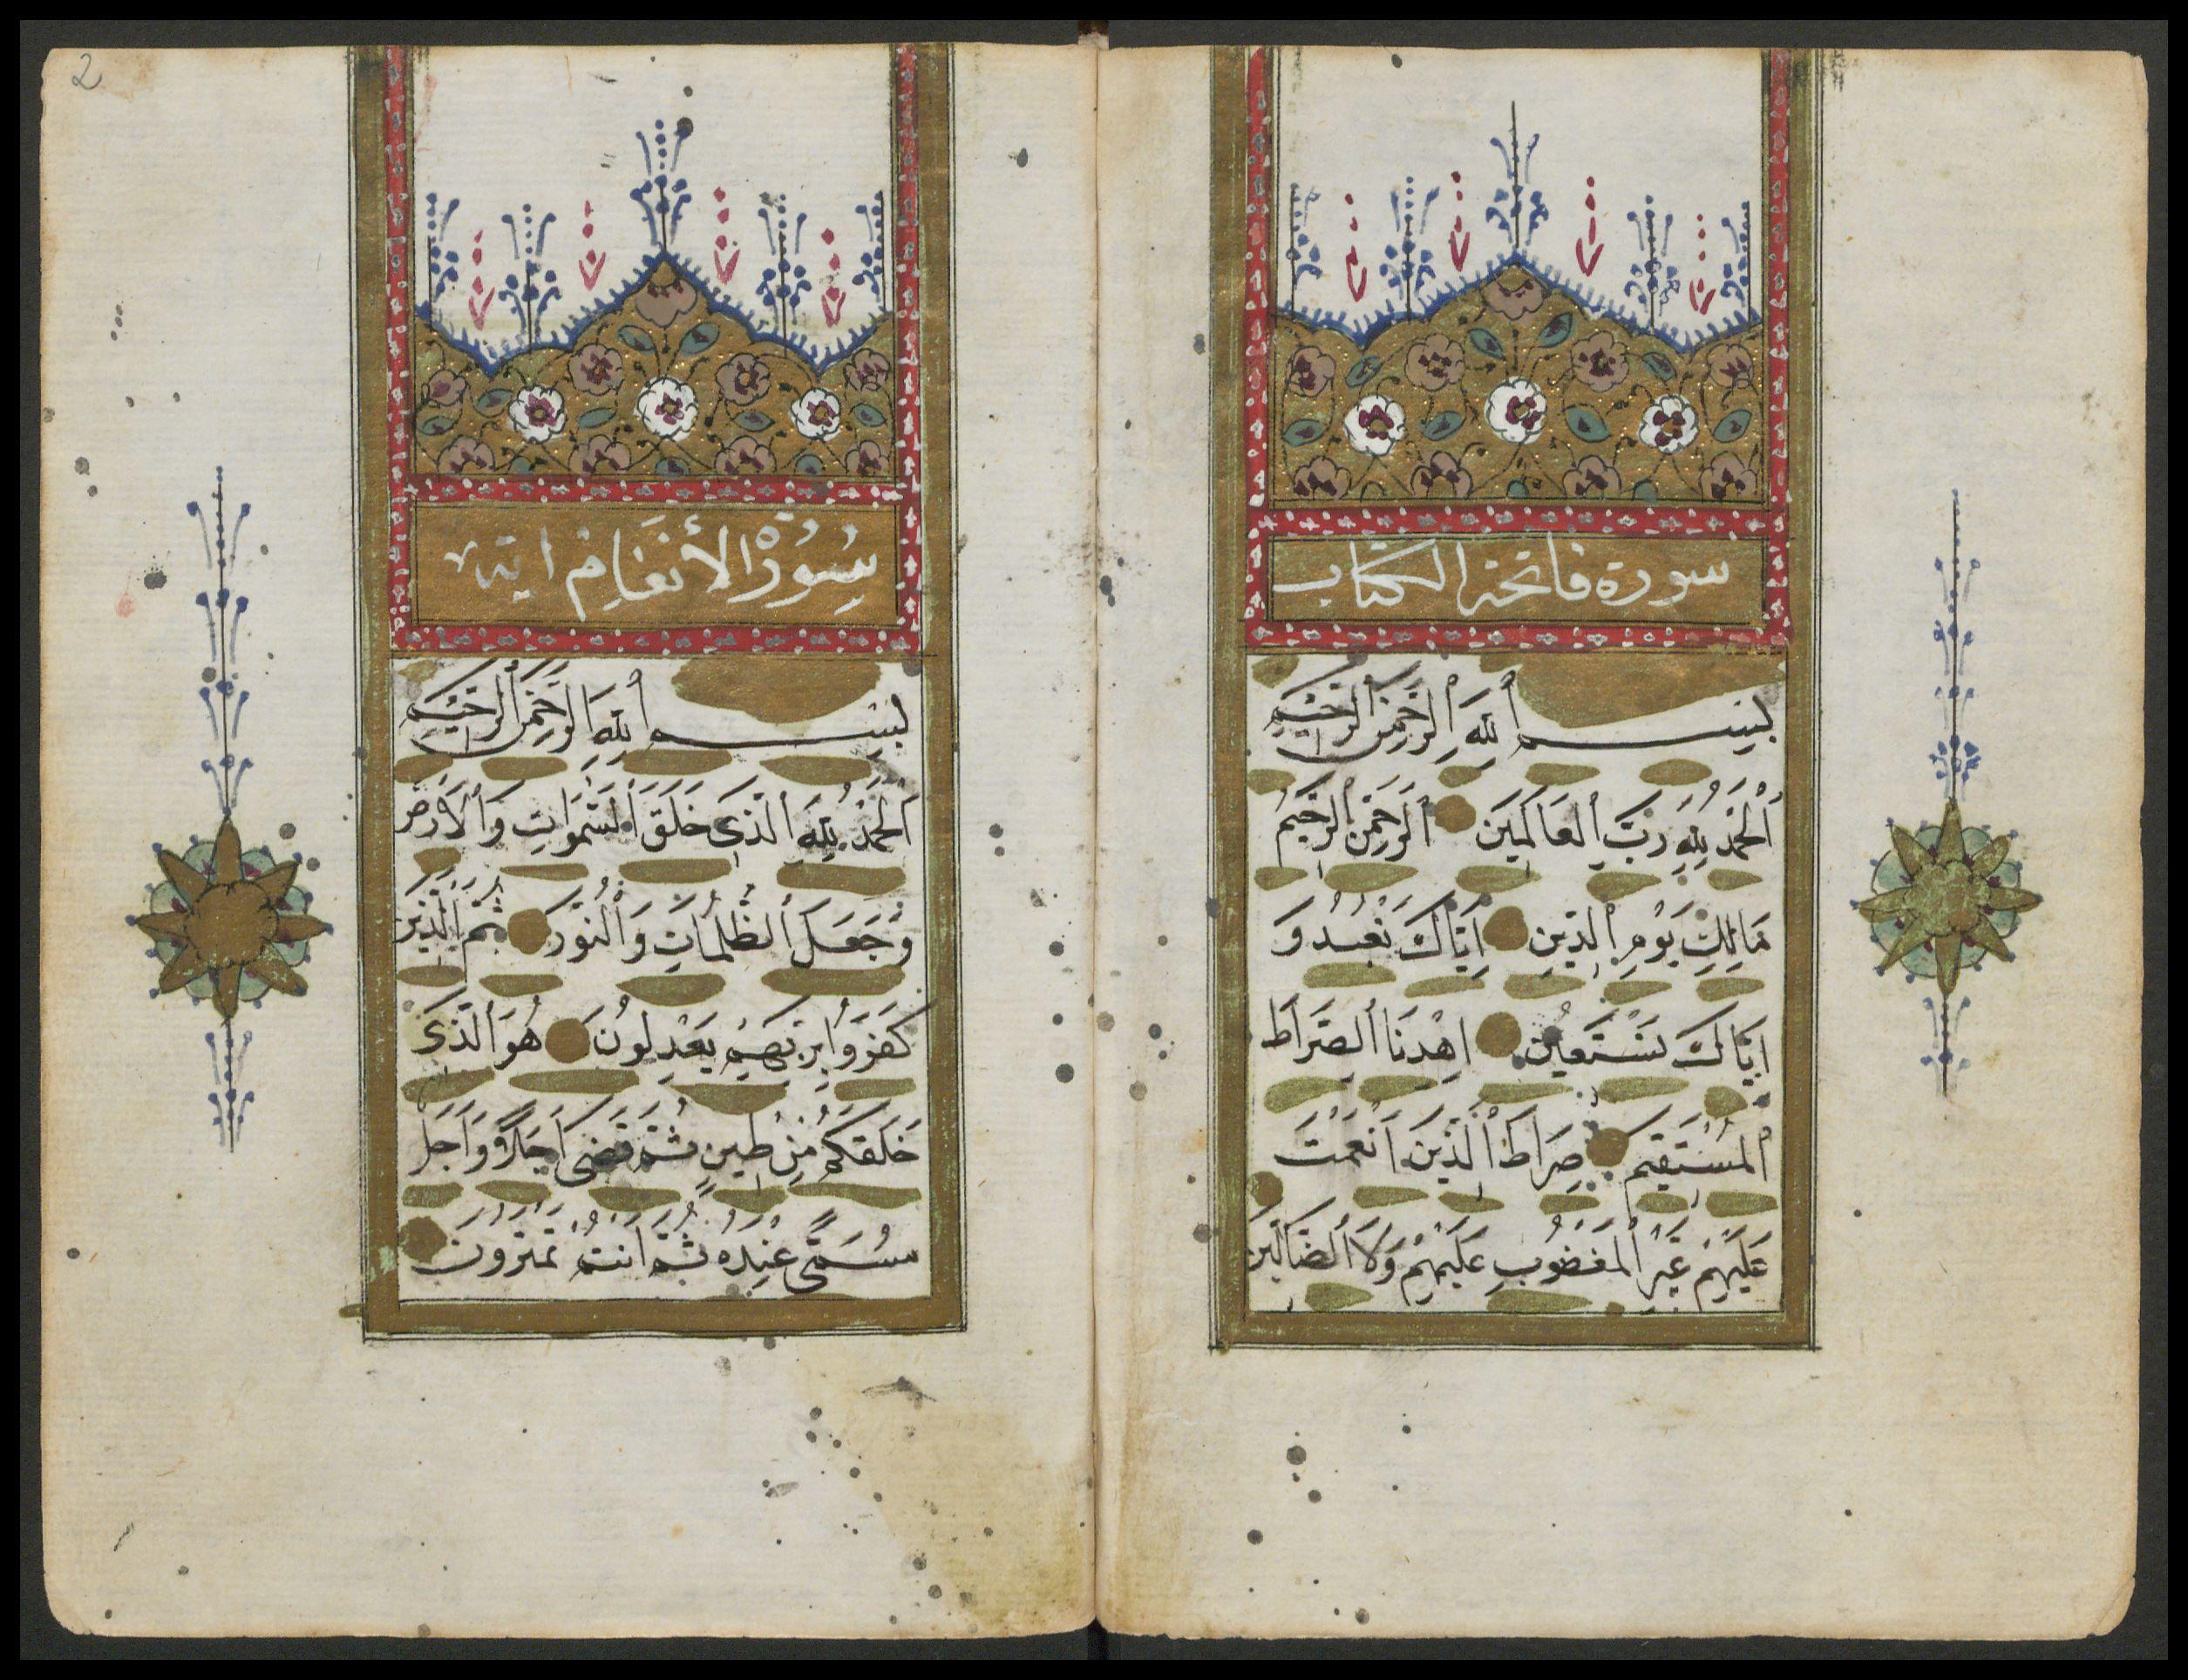 سورة فاتحة الكتاب
بِسْمِ ٱللَّهِ ٱلرَّحْمَٰنِ ٱلرَّحِيمِ
ٱلْحَمْدُ لِلَّهِ رَبِّ ٱلْعَالَمِينَ ٱلرَّحْمٰنِ ٱلرَّحِيمِ
مَالِكِ يَوْمِ ٱلدِّينِ اِيَّاكَ نَعْبُدُ وَ
اِيَّاكَ نَسْتَعِينُ اِهْدِنَا ٱلصِّرَاطَ
ٱلْمُسْتَقِيمَ صِرَاطَ ٱلَّذِينَ اَنْعَمْتَ
عَلَيْهِمْ غَيْرِ ٱلْمَغْضُوبِ عَلَيْهِمْ وَلَا ٱلضَّالِّينَ
2
سُورَةُ الْأَنْعَامِ
بِسْمِ ٱللَّهِ ٱلرَّحْمَٰنِ ٱلرَّحِيمِ
اَلْحَمْدُ لِلَّهِ ٱلَّذِى خَلَقَ ٱلسَّمٰوَاتِ وَٱلْاَرْضَ
وَجَعَلَ ٱلظُّلُمَاتِ وَٱلنُّورَ ثُمَّ ٱلَّذِينَ
كَفَرُوا بِرَبِّهِمْ يَعْدِلُونَ هُوَ ٱلَّذِى
خَلَقَكُمْ مِنْ طِينٍ ثُمَّ قَضٰى اَجَلًا وَاَجَلٌ
مُسَمًّى عِنْدَهُ ثُمَّ اَنْتُمْ تَمْتَرُونَ